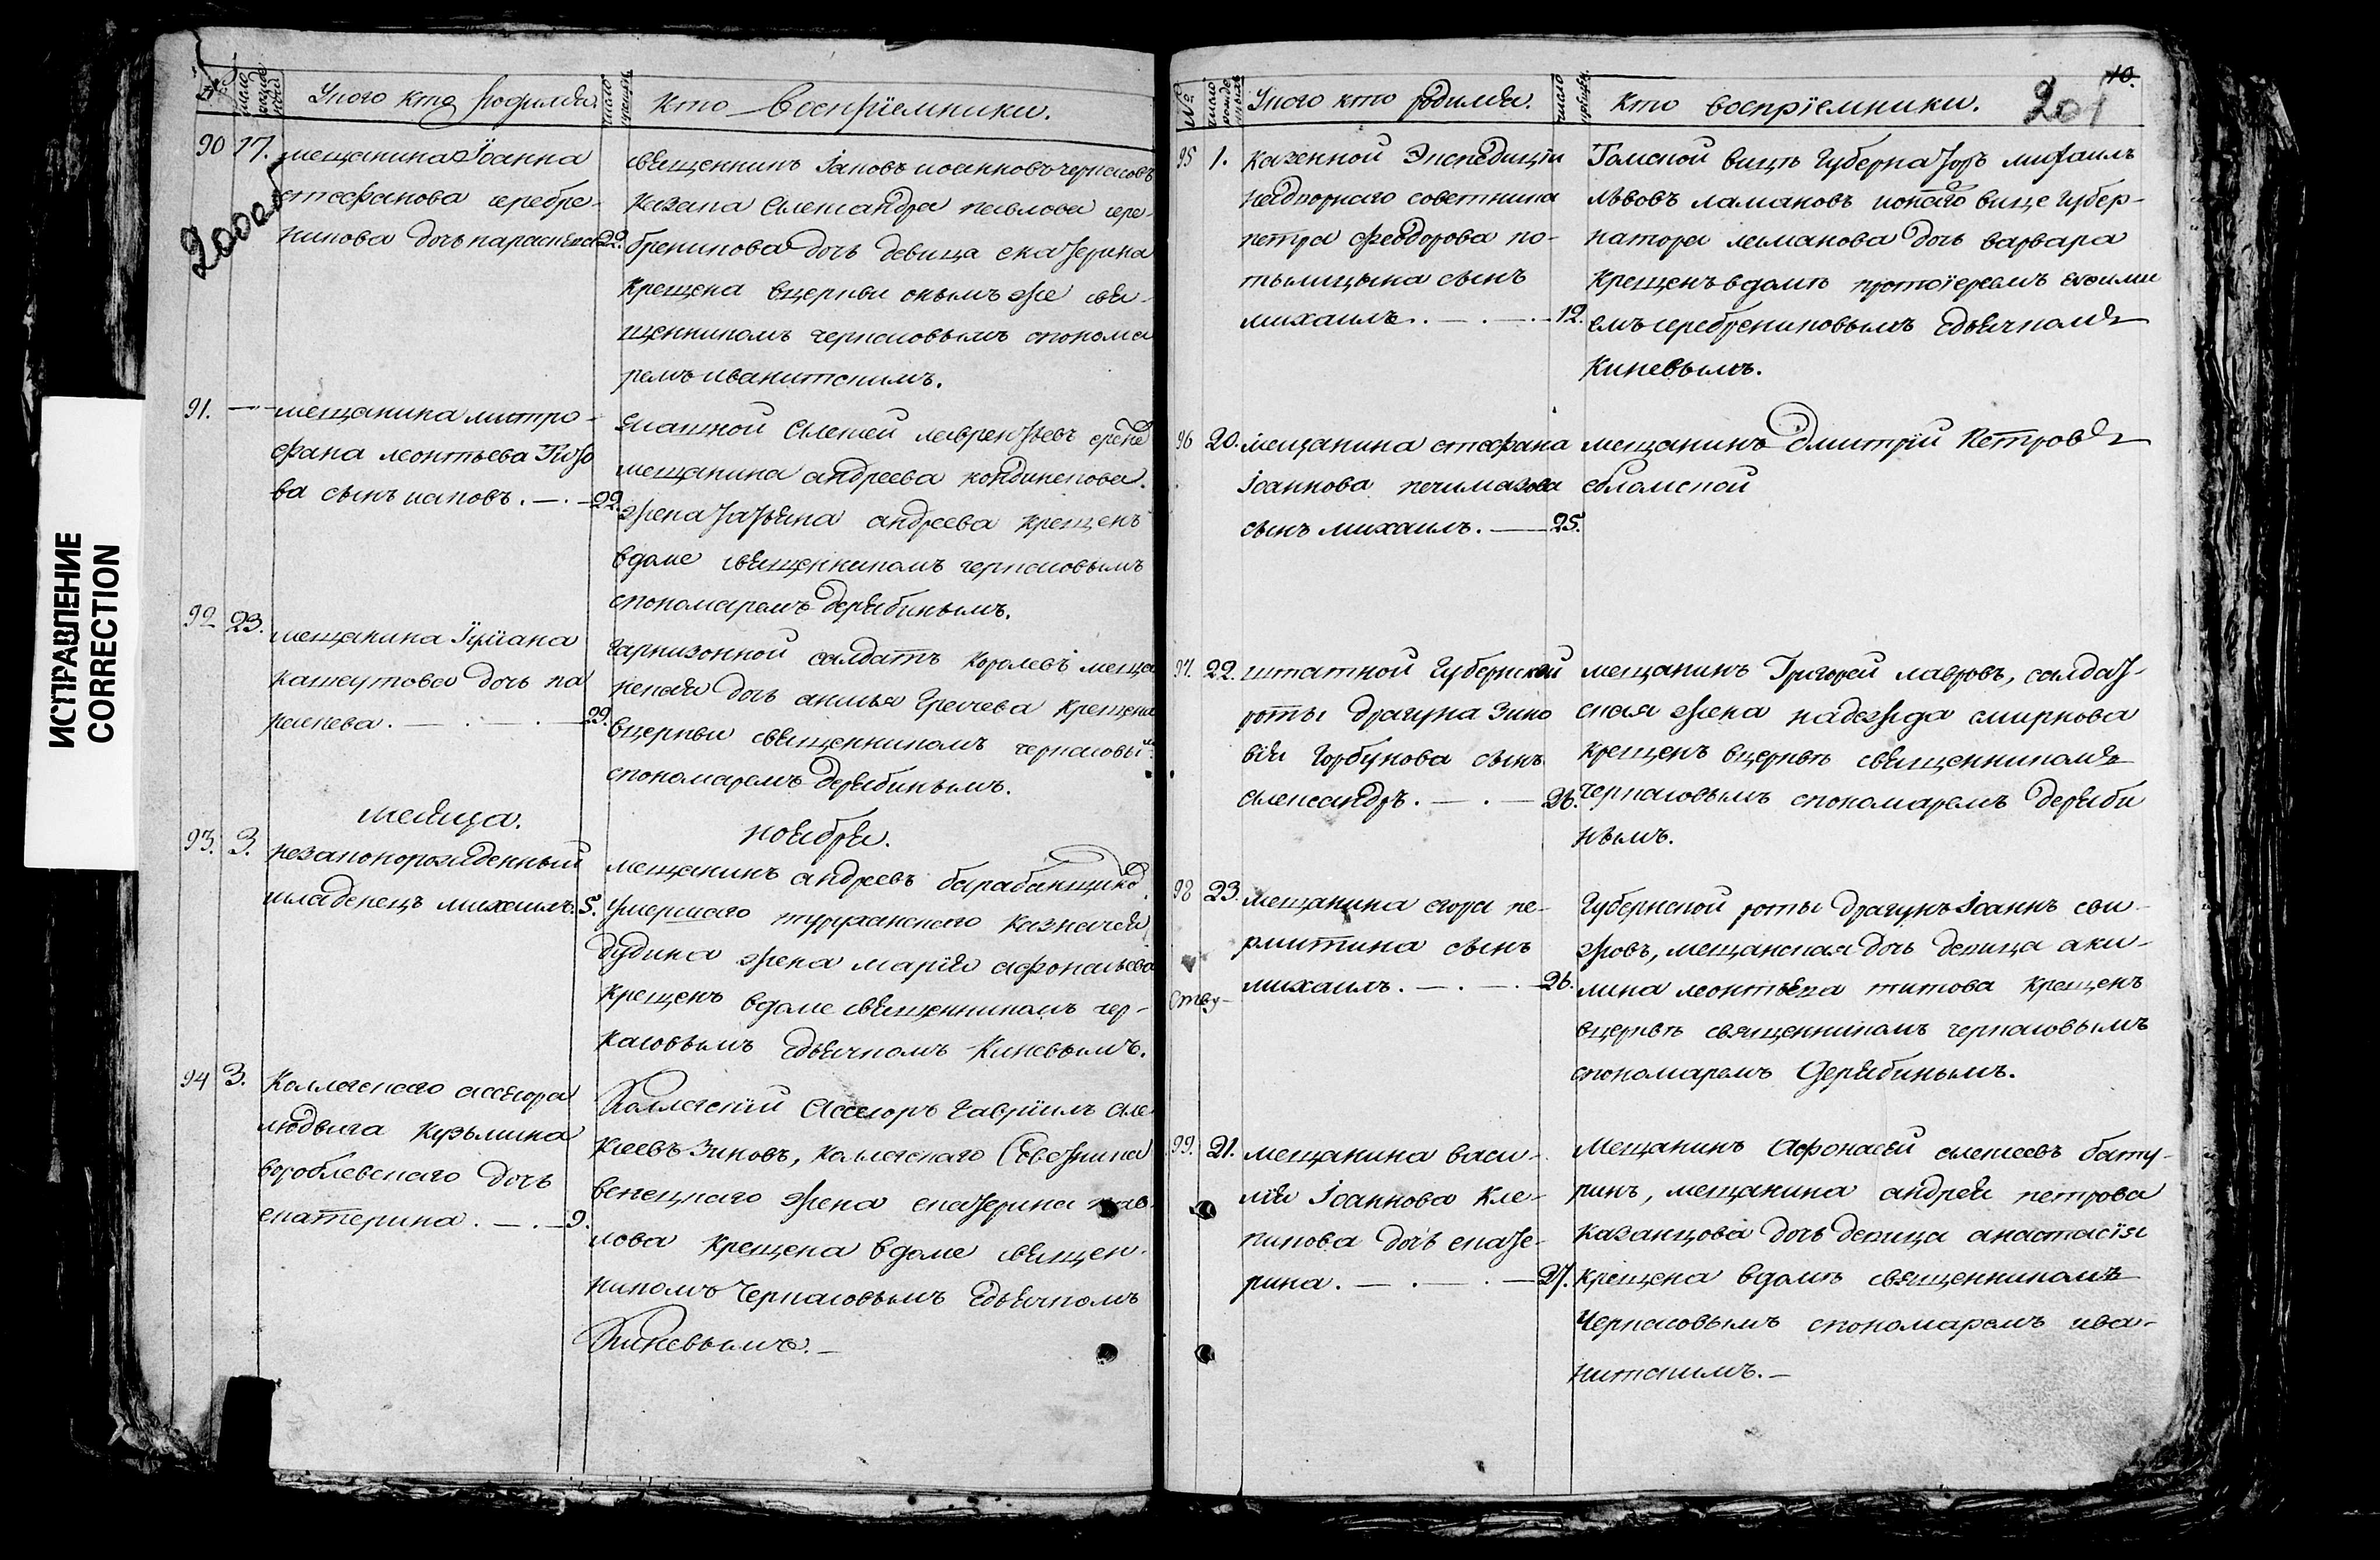 ИСПРАВЛЕНИЕ
CORRECTION
№
число рожде ній
Укого кто родился.
число крещен.
кто Воспріемники.
200 об
90 17.
мещанина Іоанна
стефанова серебре-
никова дочь параскева 22.
священникъ Іаковъ иоанновъ черкасовъ
казака Александра павлова сере-
бреникова дочь девица екатерина
крещена вцеркви онымъ же свя-
щенникомъ черкасовымъ спонома
ремъ иванитскимъ.
91. —
мещанина митро-
фана леонтьева
ва сынъ иаковъ. — . — 22.
Алексей лаврентьевъ
мещанина андреева
жена татьяна андреева крещенъ
вдоме священникомъ черкасовымъ
спономаремъ дерябинымъ.
92 23.
мещанина
дочь па
раскева. — . — 29.
гарнизонной салдатъ королевъ меща
нская дочь анисья Гречева крещена
вцеркви священникомъ черкасовым
спономаремъ дерябинымъ.
месяца.
ноября.
93. 3.
незаконорожденный
младенецъ михаилъ. 5.
мещанинъ андреевъ барабанщиков
умершаго туруханскаго казначея
дудина жена марія афонасьева
крещенъ вдоме священникомъ чер-
касовымъ сдьячкомъ Киневымъ.
94 3.
Коллегскаго ассесора
людвига кузьмина
вороблевскаго дочь
екатерина. — . — 9.
Коллегскій Ассесоръ Гавріилъ але
ксеевъ Зиновъ, коллегскаго Советника
венецкаго жена екатерина пав-
лова крещена вдоме священ-
никомъ Черкасовымъ сдьячкомъ
Киневымъ. —
№
число рожде нныхъ
Укого кто родился.
число крещен.
кто воспріемники.
10.
201
95 1.
казенной Экспедиціи
надворнаго советника
петра Феодорова по-
тылицына сынъ
михаилъ. — . — 12.
Томской вицъ Губернаторъ михаилъ
львовъ ламановъ ионаго вице Губер-
натора ламанова дочь варвара
крещенъ вдомѣ протоіереемъ ефими
емъ серебрениковымъ сдьячкомъ
Киневымъ.
96 20.
мещанина стефана
Іоаннова печимазова
сынъ михаилъ. — 25.
мещанинъ Дмитрій Петровъ
97. 22.
штатной Губернской
роты драгуна Зино
вія Горбунова сынъ
александръ. — . — 26.
мещанинъ Григорей лавровъ, салдат-
ская жена надежда смирнова
крещенъ вцерквѣ священникомъ
Черкасовымъ спономаремъ деряби
нымъ.
98 23.
мещанина егора пе-
рмитина сынъ
михаилъ. — . — 26.
Ству-
Губернской роты драгунъ Іоаннъ сви-
жовъ, мещанская дочь девица аки-
лина леонтьева титова крещенъ
вцерквѣ священникомъ черкасовымъ
спономаремъ Дерябинымъ.
99. 21.
мещанина васи-
лія Іоаннова Кле-
пикова дочь екате-
рина. — . — . — 27.
Мещанинъ Афонасей алексеевъ бату-
ринъ, мещанина андрея петрова
казанцова дочь девица анастасія
крещена вдомѣ священникомъ
Черкасовымъ спономаремъ ива-
нитскимъ. —